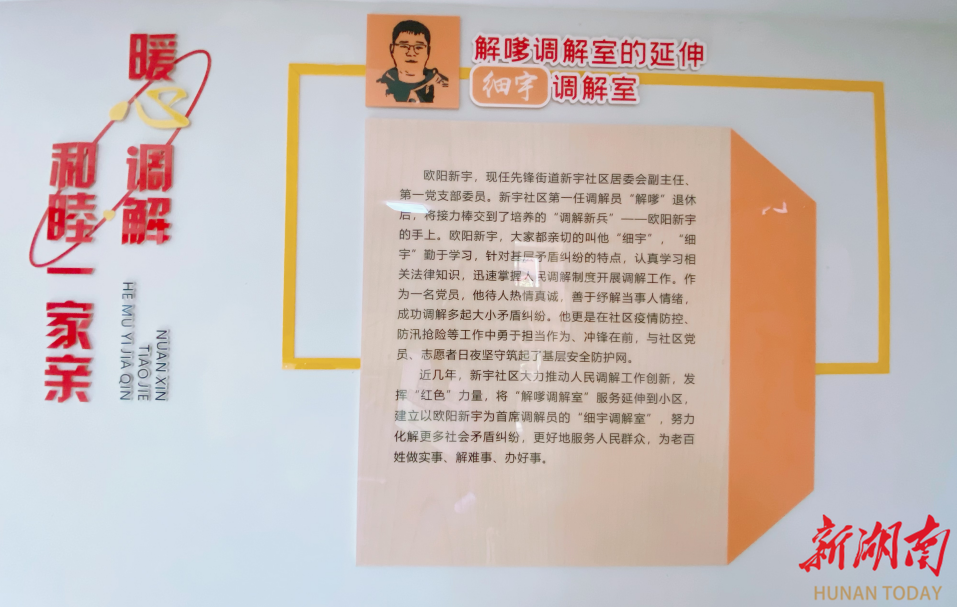 暖心调解
和睦一家亲
NUAN XIN
TIAO JIE
HE MU YI JIA QIN
解嗲调解室的延伸
细宇调解室
欧阳新宇，现任先锋街道新宇社区居委会副主任、
第一党支部委员。新宇社区第一任调解员“解嗲”退休
后，将接力棒交到了培养的“调解新兵”——欧阳新宇
的手上。欧阳新宇，大家都亲切的叫他“细宇”，“细
宇”勤于学习，针对基层矛盾纠纷的特点，认真学习相
关法律知识，迅速掌握人民调解制度开展调解工作。作
为一名党员，他待人热情真诚，善于纾解当事人情绪，
成功调解多起大小矛盾纠纷。他更是在社区疫情防控、
防汛抢险等工作中勇于担当作为、冲锋在前，与社区党
员、志愿者日夜坚守筑起了基层安全防护网。
近几年，新宇社区大力推动人民调解工作创新，发
挥“红色”力量，将“解嗲调解室”服务延伸到小区，
建立以欧阳新宇为首席调解员的“细宇调解室”，努力
化解更多社会矛盾纠纷，更好地服务人民群众，为老百
姓做实事、解难事、办好事。
新湖南
HUNAN TODAY